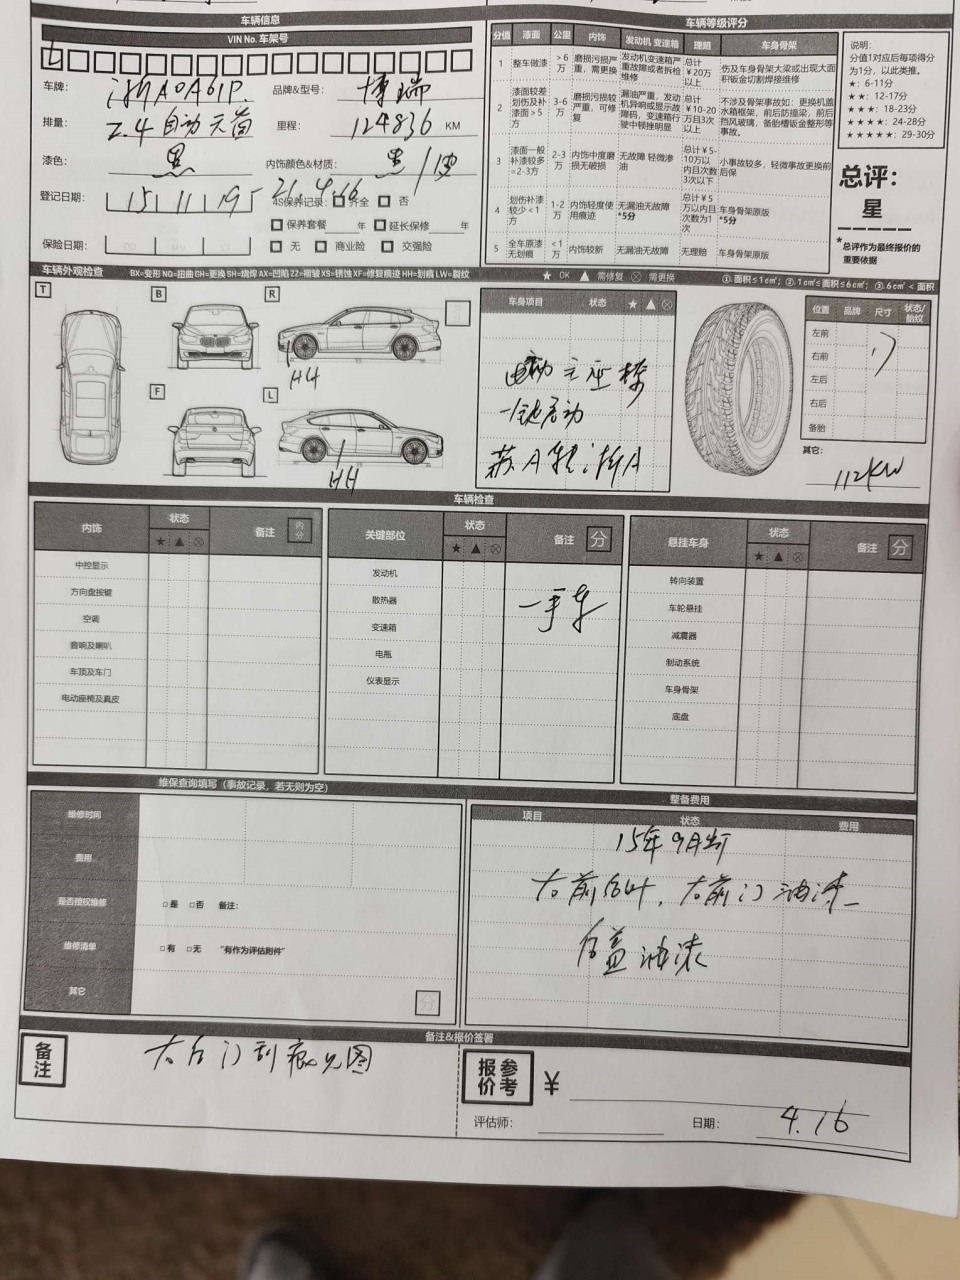 车辆信息
VIN No. 车架号
L
车牌: 浙A0A61P 品牌&型号: 博瑞
排量: 2.4自动天窗 里程: 124836 KM
漆色: 黑 内饰颜色&材质: 黑/皮
登记日期: 15 11 19 21.4.16
4S保养记录: 齐全 否
保养套餐 年 延长保修 年
保险日期: 无 商业险 交强险
车辆等级评分
分值 漆面 公里 内饰 发动机 变速箱 理赔 车身骨架
1 整车做漆 >6万 磨损污损严重,需更换 发动机变速箱严重故障或者拆检维修 总计¥20万以上 伤及车身骨架大梁或出现大面积钣金切割焊接维修
2 漆面较差划伤及补漆面>5方 3-6万 磨损污损较严重,可修复 漏油严重,发动机异响或显示故障码,变速箱行驶中顿挫明显 总计¥10-20万且3次以上 不涉及骨架事故如:更换机盖水箱框架,前后防撞梁,前后挡风玻璃,备胎槽钣金整形等事故。
3 漆面一般补漆较多=2-3方 2-3万 内饰中度磨损无破损 无故障 轻微渗油 总计¥5-10万以内且次数3次以下 小事故较多,轻微事故更换前后保
4 划伤补漆较少<1方 1-2万 内饰轻度使用痕迹 无漏油无故障*5分 总计¥5万以内且次数为1次 车身骨架原版*5分
5 全车原漆无划痕 <1万 内饰较新 无漏油无故障 无理赔 车身骨架原版
说明:
分值1对应后每项得分为1分,以此类推。
★: 6-11分
★★: 12-17分
★★★: 18-23分
★★★★: 24-28分
★★★★★: 29-30分
总评:
星
*总评作为最终报价的重要依据
车辆外观检查 BX=变形 NQ=扭曲 GH=更换 SH=烧焊 AX=凹陷 ZZ=褶皱 XS=锈蚀 XF=修复痕迹 HH=划痕 LW=裂纹 ★ OK ▲ 需修复 ⊗ 需更换 ①.面积≤1c㎡; ②.1c㎡≤面积≤6c㎡; ③.6c㎡<面积
T B R
HH
F L
HH
车身项目 状态 ★ ▲ ⊗
一键启动
苏A转浙A
位置 品牌 尺寸 状态/胎纹
左前
右前
17
左后
右后
备胎
其它: 112KW
车辆检查
内饰 状态 备注 内分
★ ▲ ⊗
中控显示
方向盘按键
空调
音响及喇叭
车顶及车门
电动座椅及真皮
关键部位 状态 备注 分
★ ▲ ⊗
发动机
散热器
变速箱
电瓶
仪表显示
一手车
悬挂车身 状态 备注 分
★ ▲ ⊗
转向装置
车轮悬挂
减震器
制动系统
车身骨架
底盘
维保查询填写(事故记录,若无则为空)
维修时间
费用
是否授权维修 □是 □否 备注:
维修清单 □有 □无 "有作为评估附件"
其它 分
整备费用
项目 状态 费用
15年9月出厂
右前后叶,右前门油漆
后盖油漆
备注&报价签署
备注 右后门刮痕见图
参考报价 ¥
评估师: 日期: 4.16